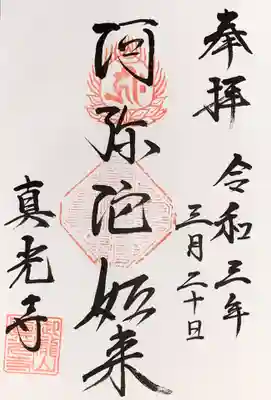 奉拝
令和三年
三月二十日
阿弥陀如来
真光寺